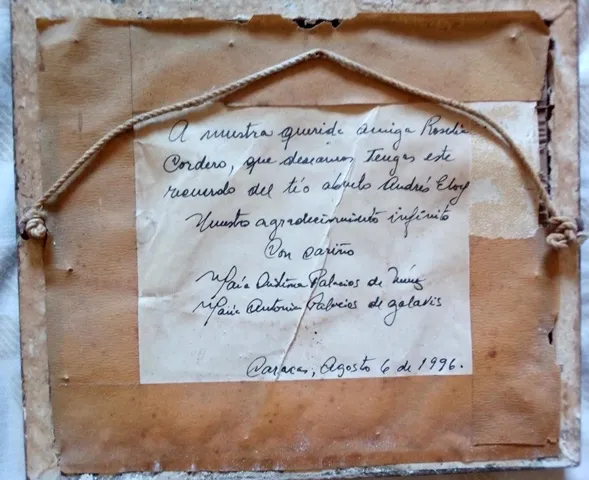 A nuestra querida amiga Roselia
Cordero, que deseamos Tengas este
recuerdo del tío abuelo Andrés Eloy
Nuestro agradecimiento infinito
Con cariño
María Cristina Palacios de
María Antonia Palacios de galavís
Caracas, Agosto 6 de 1996.